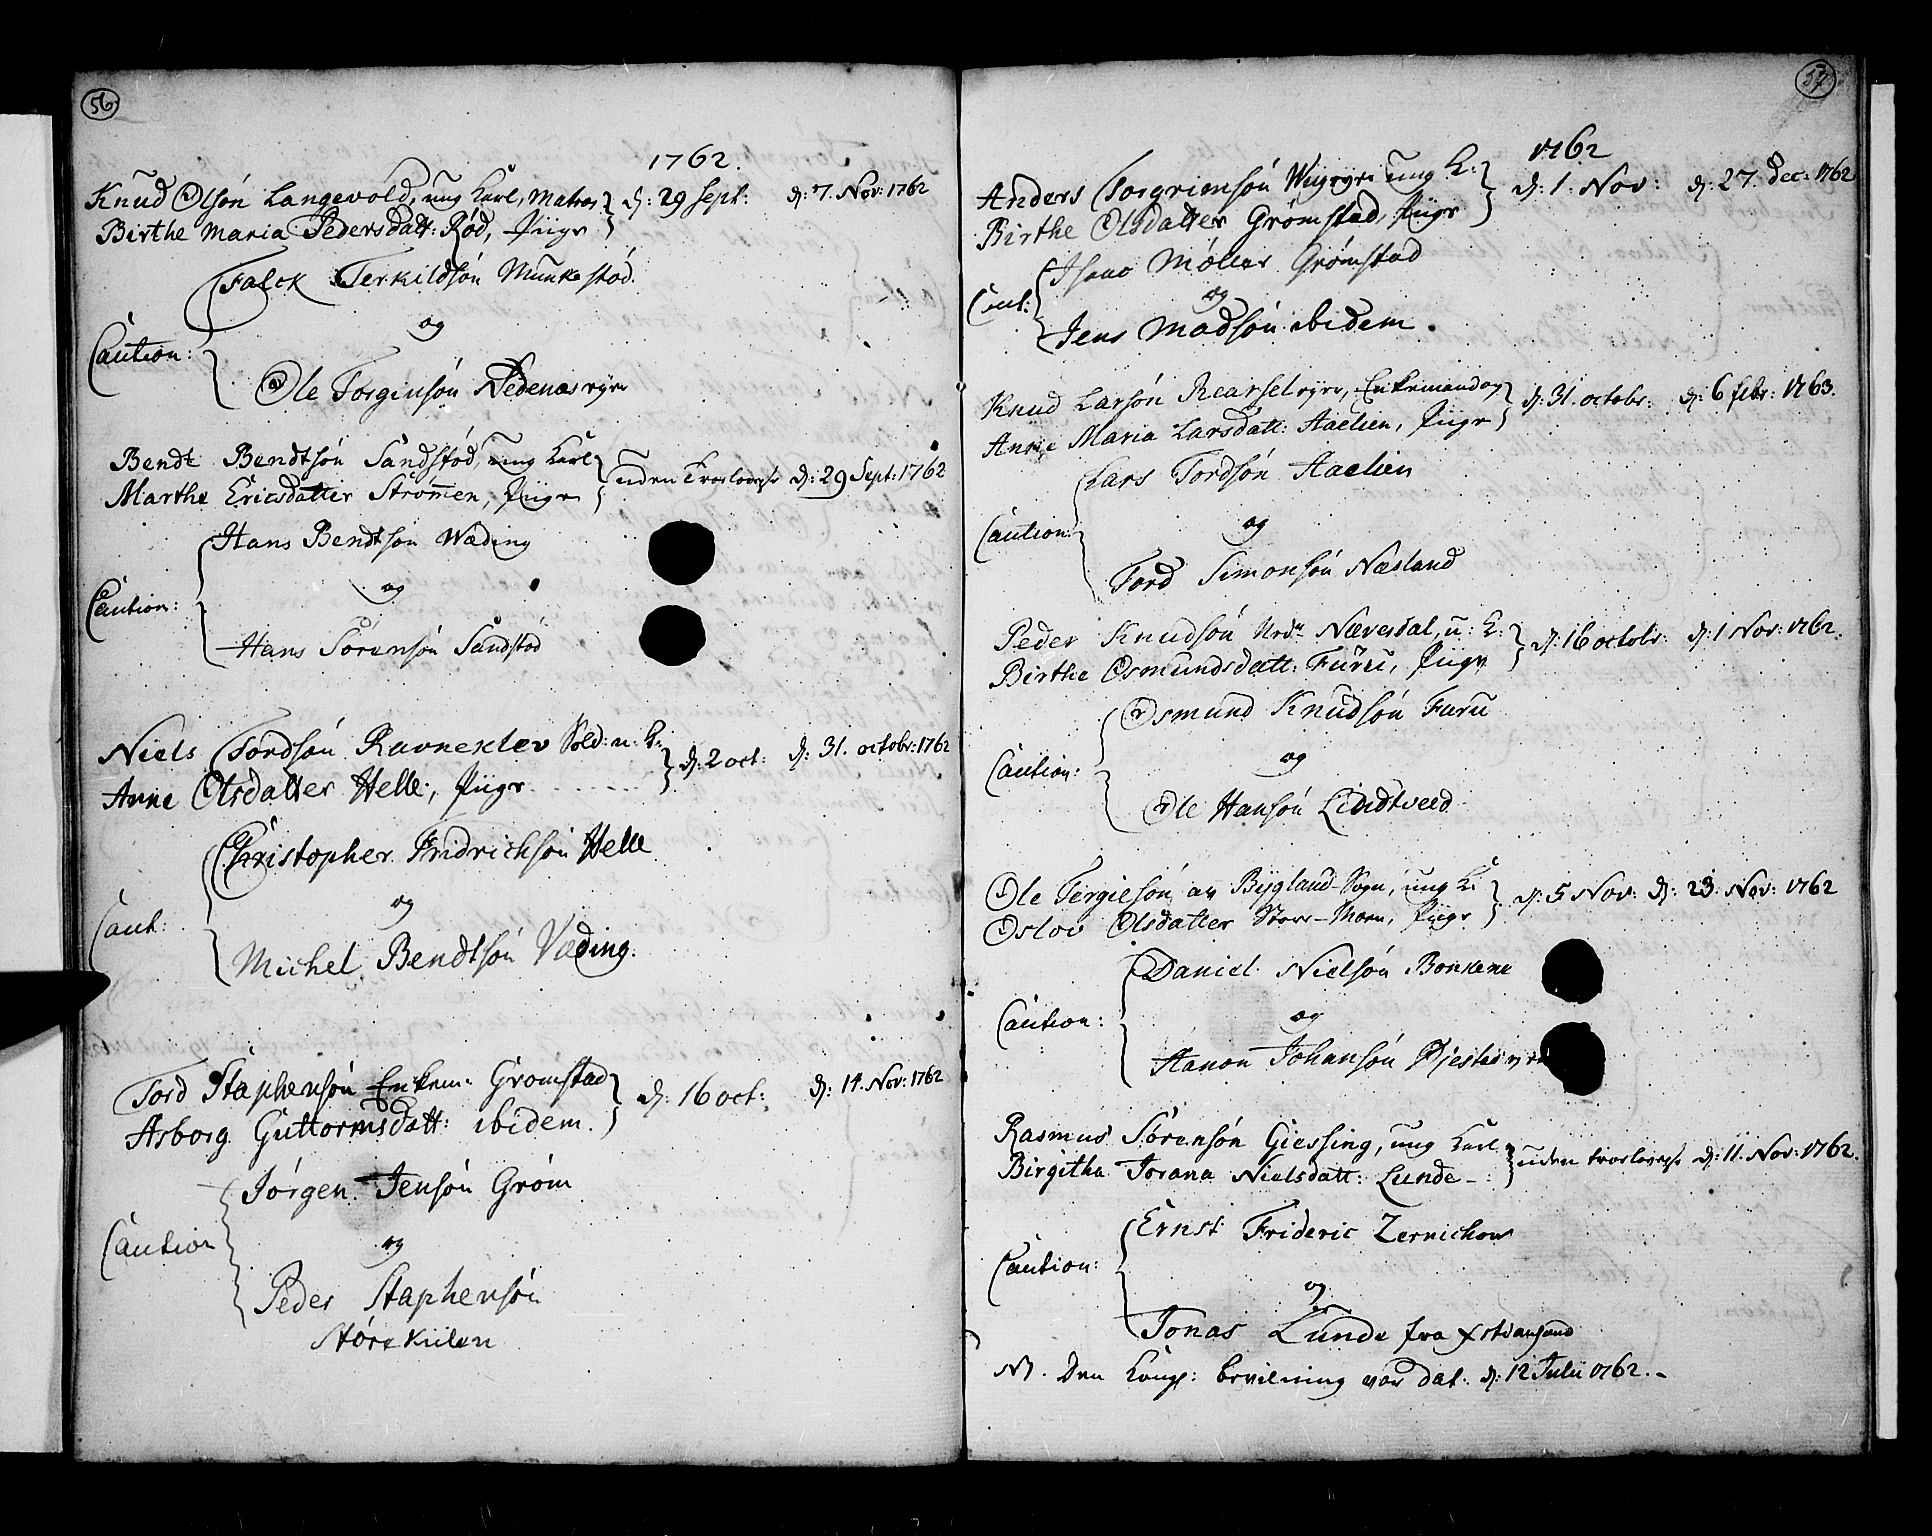 56
1762.
Knud Olsøn Langevold, ung Karl, Matros d: 29 Sept: d: 7. Nov: 1762
Birthe Maria Pedersdatt: Rød, Piige
Falck Terkildsøn Munkestød.
og
Caution:
Ole Torginsøn Nedenæs
Bendt Bendtsøn Sandstød, ung Karl uden Troelovelse d: 29 Sept: 1762
Marthe Ericsdatter Strømen, Piige
Hans Bendtsøn Wæding
og
Caution:
Hans Sørensøn Sandstød
Niels Tordsøn Ravneklev Sold: u: K: d: 2 oct: d: 31. octobr: 1762
Anne Olsdatter Helle, Piige
Christopher Fridrichsøn Helle
og
Caut:
Michel Bendtsøn Væding.
Tord Staphensøn Enkem: Gromstad d: 16 oct: d: 14. Nov: 1762
Asborg Guttormsdatt: ibidem.
Jørgen Jensøn Grøm
og
Caution
Peder Staphensøn
Størekiilen
57
1762
Anders Torgrimsøn ung K: d: 1. Nov: d: 27. Dec: 1762
Birthe Olsdatter Grømstad, Piige
Isaac Møller Grømstad
og
Caut:
Jens Madsøn ibidem.
Knud Larsøn Enkemand og d: 31. octobr: d: 6 febr: 1763.
Anne Maria Larsdatt: Aaelien, Piige
Lars Tordsøn Aaelien
og
Caution:
Tord Simonsøn Næsland
Peder Knudsøn Nævesdal, u: K: d: 16 octobr: d: 1 Nov: 1762.
Birthe Osmundsdatt: Furu, Piige
Osmund Knudsøn Furu
og
Caution:
Ole Hansøn Lindtveed
Ole Tergielsøn af Bygland-Sogn, ung K: d: 5 Nov: d: 23. Nov: 1762
Oslov Olsdatter Store-Moen, Piige
Daniel Nielsøn Bonkene
og
Caution:
Aanon Johansøn
Rasmus Sørensøn Giessing, ung Karl uden troelovelse d: 11. Nov: 1762.
Birgitha Jorana Nielsdatt: Lunde
Ernst Frideric Zernichow
og
Caution:
Jonas Lunde fra Xstiansand
NB. Den Kongl: bevilning var dat: d: 12 Julii 1762.